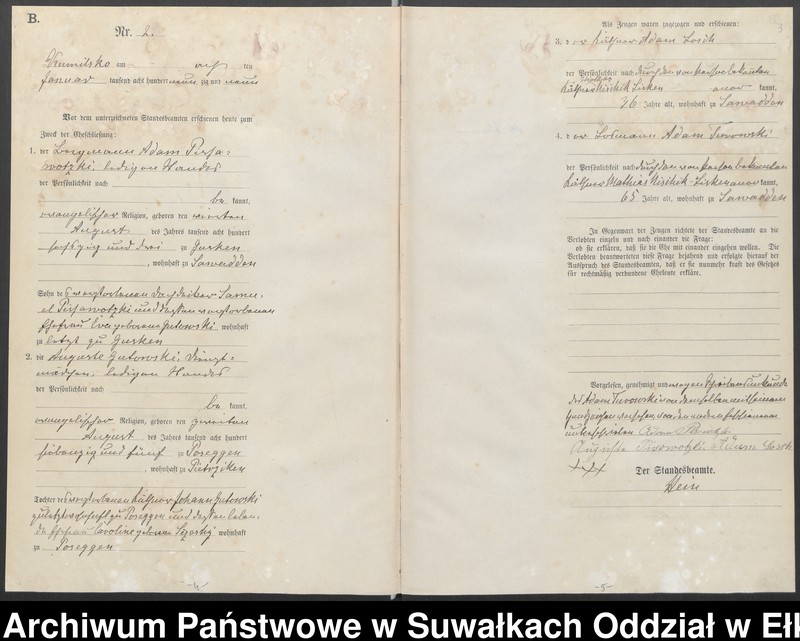 B.
Nr. 2.
am acht ten
Januar tausend acht hundert neun zig und neun
Vor dem unterzeichneten Standesbeamten erschienen heute zum
Zweck der Eheschließung:
1. der Losmann Adam
ledigen Standes
der Persönlichkeit nach
be kannt,
evangelischer Religion, geboren den vierten
August des Jahres tausend acht hundert
sechszig und drei zu Gusken
, wohnhaft zu Sawadden
Sohn des verstorbenen
und dessen verstorbenen
Ehefrau Eva geborene Gutowski wohnhaft
zuletzt zu Gusken
2. die Auguste Gutowski, Dienst-
mädchen, ledigen Standes
der Persönlichkeit nach
be kannt,
evangelischer Religion, geboren den zweiten
August des Jahres tausend acht hundert
siebenzig und fünf zu Poseggen
, wohnhaft zu Pietrziken
Tochter des verstorbenen Käthner Johann Gutowski
zuletzt wohnhaft zu Poseggen und dessen leben-
den Ehefrau Caroline geborene wohnhaft
zu Poseggen
-4-
Als Zeugen waren zugezogen und erschienen:
3. der Käthner Adam Losch
der Persönlichkeit nach durch den von Person bekannten
Käthner aner kannt,
26 Jahre alt, wohnhaft zu Sawadden
4. der Losmann Adam Turowski
der Persönlichkeit nach durch den von Person bekannten
Käthner Mathias anner kannt,
65 Jahre alt, wohnhaft zu Sawadden
In Gegenwart der Zeugen richtete der Standesbeamte an die
Verlobten einzeln und nach einander die Frage:
ob sie erklären, daß sie die Ehe mit einander eingehen wollen. Die
Verlobten beantworteten diese Frage bejahend und erfolgte hierauf der
Ausspruch des Standesbeamten, daß er sie nunmehr kraft des Gesetzes
für rechtmäßig verbundene Eheleute erkläre.
Vorgelesen, genehmigt und wegen Schreibensunkunde
des Adam Turowski von demselben mit seinem
Handzeichen versehen, von den anderen Erschienenen
unterschrieben Adam
Auguste Losch
+++
Der Standesbeamte.
Hein
-5-
Archiwum Państwowe w Suwałkach Oddział w Eł